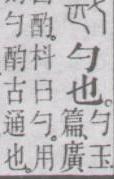 勺也。
勺玉
篇廣
酌。枓曰勺。用
勺酌古通也。